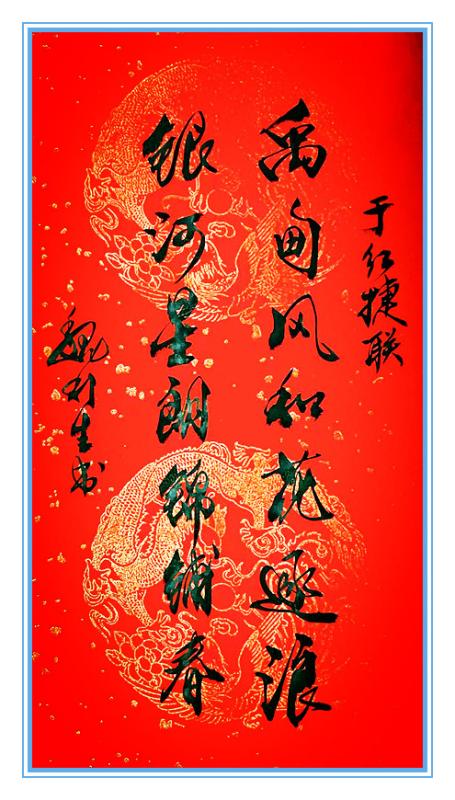 于红捷联
禹甸风和花逐浪
银河星朗锦铺春
魏利生书